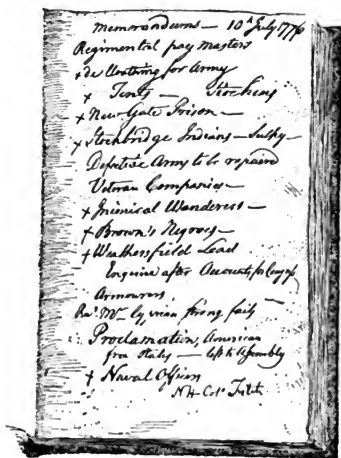 Memorandums — 10th July 1776
Regimental pay Masters
+ de Cloathing for Army
+ Tents — Stockings
+ New Gate Prison —
+ Stockbridge Indians — Sulky —
Defective Arms to be repaired
Veteran Companies —
+ Inimical Wanderers —
+ Brown's Negroes —
+ Weathersfield Lead
Enquire after Accounts for
Armourers
Mr Lyman strong
Proclamation, American
free States — left to Assembly
+ Naval Officers
NH Colo